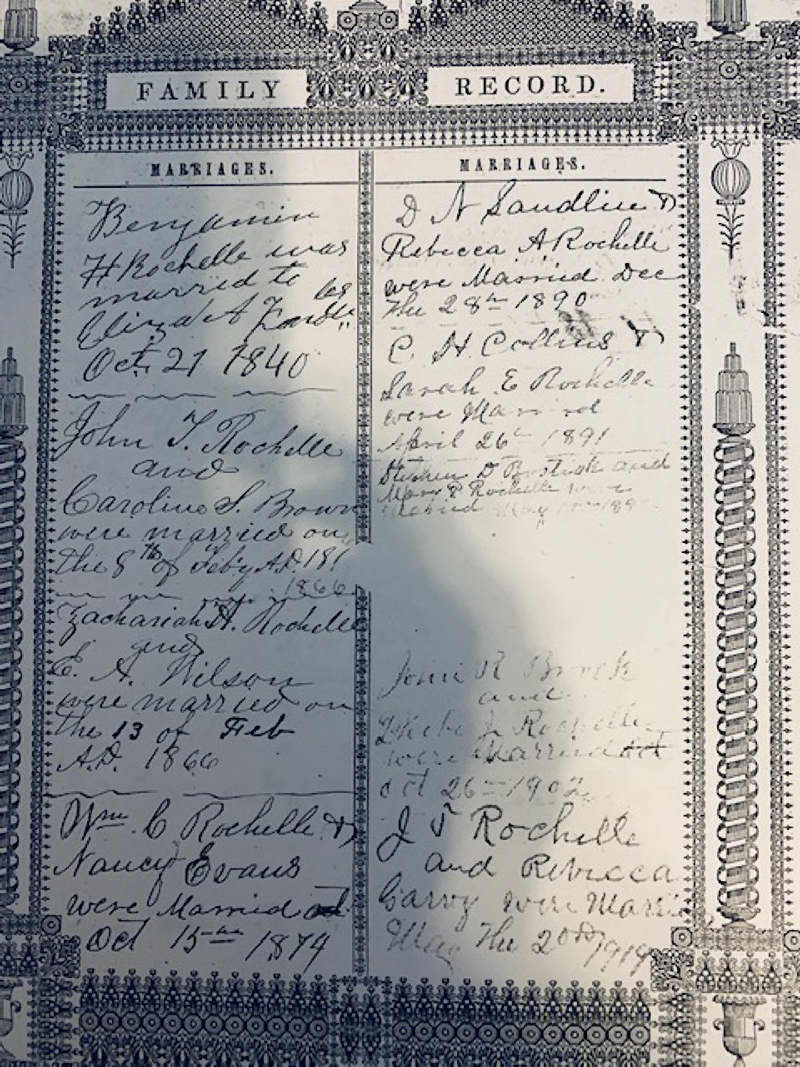 FAMILY RECORD.
MARRIAGES.
Benjamin
H Rochelle was
married to
Eliza A
Oct. 21 1840
John T. Rochelle
and
Caroline S. Brown
were married on
the 8th of Feby A.D. 186
1866
Zachariah H. Rochelle
and
E. A. Wilson
were married on
the 13 of Feb
A.D. 1866
Wm. C Rochelle &
Nancy Evans
were Married
Oct 15th 1879
MARRIAGES.
D N Sandlin &
Rebecca A. Rochelle
were Married Dec
the 28th 1890
C. H. Collins &
Sarah E Rochelle
were Married
April 26th 1891
Stephen D and
Mary Rochelle were
Married May 189
John R Brock
and
J. Rochelle
were Married
Oct 26th 1902
J T Rochelle
and Rebecca
were Marri
May the 2nd 1919